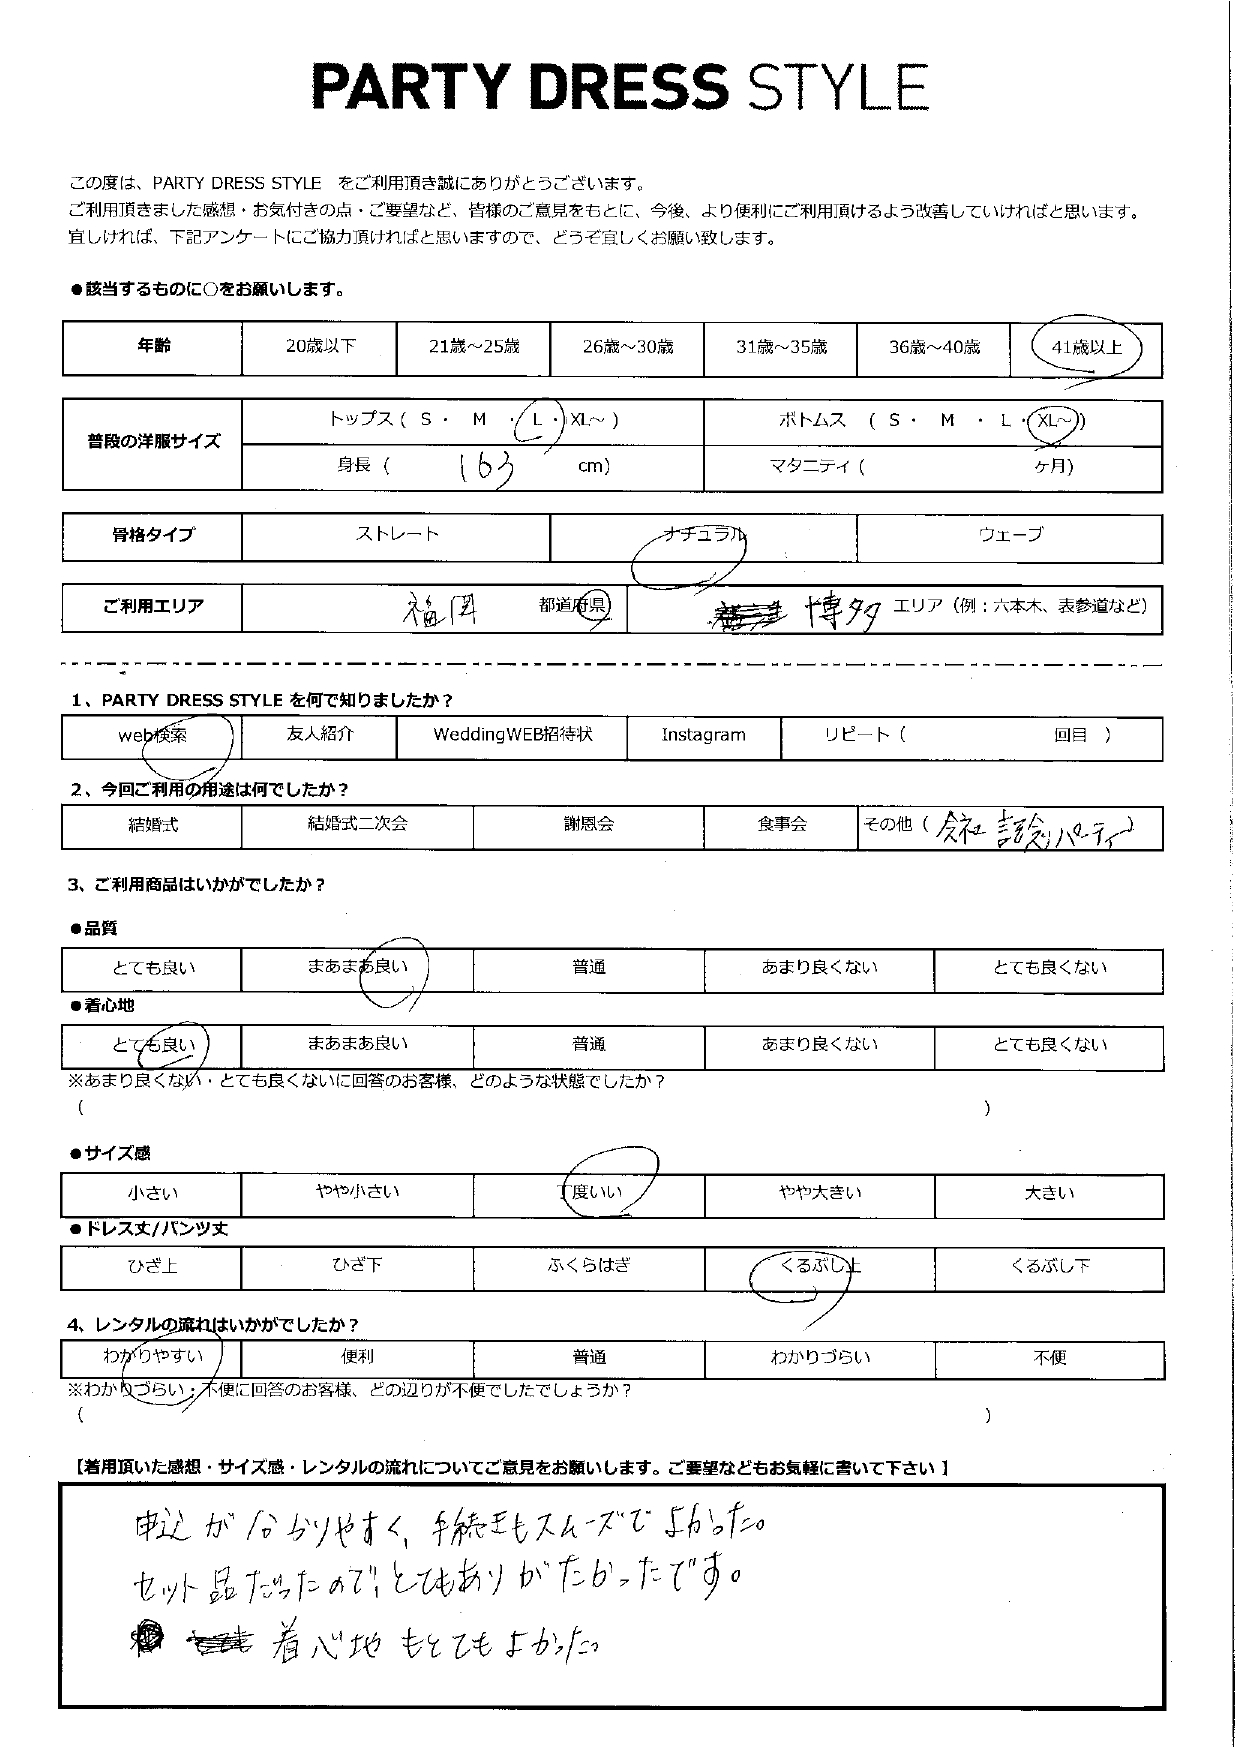 PARTY DRESS STYLE
この度は、PARTY DRESS STYLE をご利用頂き誠にありがとうございます。
ご利用頂きました感想・お気付きの点・ご要望など、皆様のご意見をもとに、今後、より便利にご利用頂けるよう改善していければと思います。
宜しければ、下記アンケートにご協力頂ければと思いますので、どうぞ宜しくお願い致します。
●該当するものに○をお願いします。
年齢 20歳以下 21歳～25歳 26歳～30歳 31歳～35歳 36歳～40歳 41歳以上
普段の洋服サイズ トップス ( S ・ M ・ L ・ XL～ ) ボトムス ( S ・ M ・ L ・ XL～ )
身長 ( 163 cm) マタニティ ( ヶ月)
骨格タイプ ストレート ナチュラル ウェーブ
ご利用エリア 福岡 都道府県 博多 エリア（例：六本木、表参道など）
1、PARTY DRESS STYLE を何で知りましたか？
web検索 友人紹介 WeddingWEB招待状 Instagram リピート ( 回目 )
2、今回ご利用の用途は何でしたか？
結婚式 結婚式二次会 謝恩会 食事会 その他 ( 会社 パーティ )
3、ご利用商品はいかがでしたか？
●品質
とても良い まあまあ良い 普通 あまり良くない とても良くない
●着心地
とても良い まあまあ良い 普通 あまり良くない とても良くない
※あまり良くない・とても良くないに回答のお客様、どのような状態でしたか？
( )
●サイズ感
小さい やや小さい 丁度いい やや大きい 大きい
●ドレス丈/パンツ丈
ひざ上 ひざ下 ふくらはぎ くるぶし上 くるぶし下
4、レンタルの流れはいかがでしたか？
わかりやすい 便利 普通 わかりづらい 不便
※わかりづらい・不便に回答のお客様、どの辺りが不便でしたでしょうか？
( )
【着用頂いた感想・サイズ感・レンタルの流れについてご意見をお願いします。ご要望などもお気軽に書いて下さい】
申込が分かりやすく、手続きもスムーズでよかった。
セット品だったので、とてもありがたかったです。
着心地もとてもよかった。